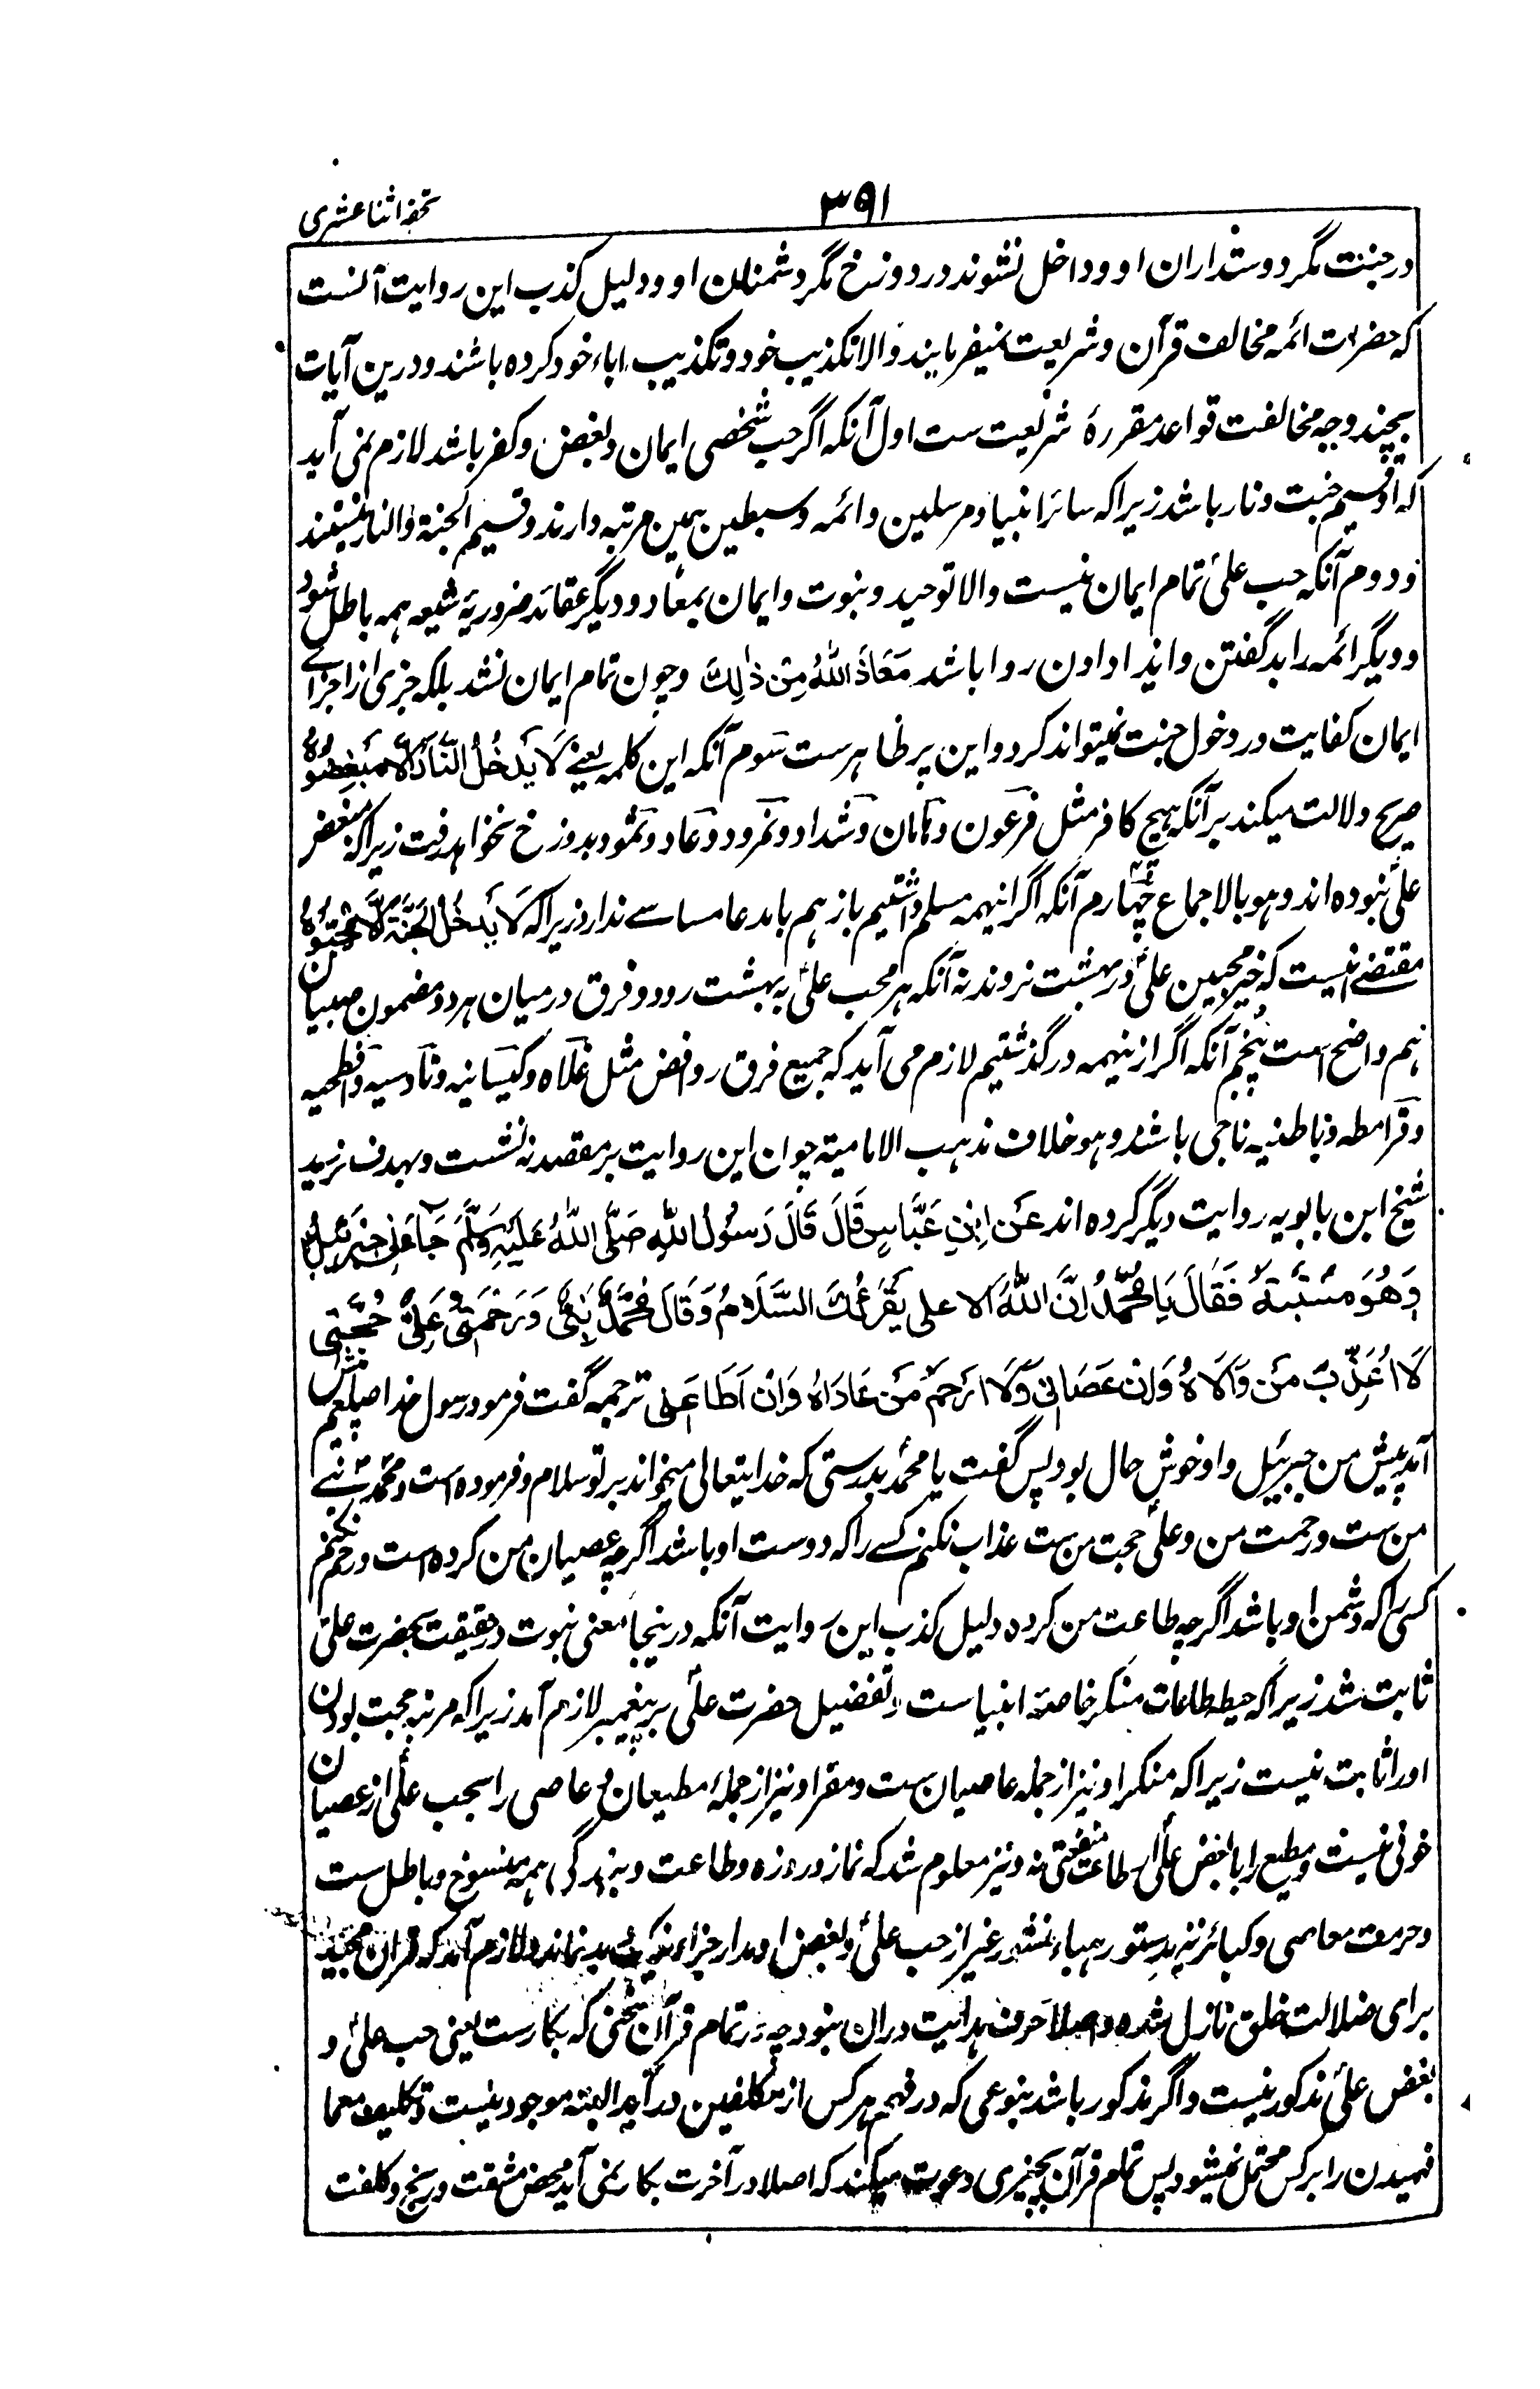 تحفہ اثنا عشری
۳۹۱
در جنت مگر دوستداران او و داخل نشوند در دوزخ مگر دشمنان او و دلیل کذب این روایت آنست
که حضرات ائمه مخالف قرآن و شریعت نمیفرمایند والا تکذیب خود و تکذیب اباء خود کرده باشند و درین آیات
بچند وجه مخالفت قواعد مقررۀ شریعت ست اول آنکه اگر حب شخصی ایمان و بغض و کفر باشد لازم نمی آید
که او قسیم جنت و نار باشد زیرا که سائر انبیا و مرسلین و ائمه و سبطین همین مرتبه دارند و قسیم الجنة والنار نیستند
و دوم آنکه حب علیؓ تمام ایمان نیست والا توحید و نبوت و ایمان بمعاد و دیگر عقائد ضروریۀ شیعه همه باطل شود
و دیگر ائمه را بد گفتن و ایذا دادن روا باشد مَعَاذَ اللهُ مِنْ ذٰلِكَ و چون تمام ایمان نشد بلکه جزی از اجزاے
ایمان کفایت در دخول جنت نمیتواند کرد و این پر ظاهرست سوم آنکه این کلمه یعنے لَا يَدْخُلُ النَّارَ اِلَّا مُبْغِضُوْهُ
صریح دلالت میکند بر آنکه هیچ کافر مثل فرعون و هامان و شداد و نمرود و عاد و ثمود بدوزخ نخواهد رفت زیرا که مبغض
علیؓ نبوده اند و هو بالاجماع چهارم آنکه اگر اینهمه مسلم داشتیم باز هم بادعا مساسے ندارد زیرا که لَا يَدْخُلُ الْجَنَّةَ اِلَّا مُحِبُّوْهُ
مقتضے اینست که غیر محبین علیؓ در بهشت نروند نه آنکه هر محب علیؓ به بهشت رود و فرق در میان هر دو مضمون صبیان
نیم واضح است پنجم آنکه اگر ازینهمه در گذشتیم لازم می آید که جمیع فرق روافض مثل غلاه و کیسانیه و ناؤسیه و افطحیه
و قرامطه و باطنیه ناجی باشند و هو خلاف مذهب الامامیة چون این روایت بر مقصد نه نشست و بهدف نرسید
شیخ ابن بابویه روایت دیگر کرده اند عَنِ ابْنِ عَبَّاسٍ قَالَ قَالَ رَسُوْلُ اللهِ صَلَّى اللهُ عَلَيْهِ وَسَلَّمَ جَاءَنِیْ جِبْرَئِيْلُ
وَهُوَ مُسْتَبْشِرٌ فَقَالَ يَا مُحَمَّدُ اِنَّ اللهَ الاعلى يَقْرَءُكَ السَّلَامُ وَقَالَ مُحَمَّدٌ نَبِیِّ وَرَحْمَتِیْ وَعَلِیٌّ حُجَّتِی
لَا اُعَذِّبُ مَنْ وَالَاهُ وَاِنْ عَصَانِیْ وَلَا اَرْحَمُ مَنْ عَادَاهُ وَاِنْ اَطَاعَنِی ترجمه گفت فرمود رسول خدا صلعم
آمد پیش من جبرئیل و او خوش حال بود پس گفت یا محمد بدرستی که خدایتعالی میخواند بر تو سلام و فرموده است محمد نبے
من ست و رحمت من و علیؓ حجت من ست عذاب نکنم کسے را که دوست او باشد اگرچه عصیان من کرده است و رحم نکنم
کسی را که دشمن او باشد اگرچه طاعت من کرده دلیل کذب این روایت آنکه درینجا معنی نبوت در حقیقت بحضرت علیؓ
ثابت شد زیرا که حبط طاعات منکر خاصۀ انبیاست و تفضیل حضرت علیؓ بر پیغمبر لازم آمد زیرا که مرتبۀ حجت بودن
او را ثابت نیست زیرا که منکر او نیز از جمله عاصیان ست و مقر او نیز از جملۀ مطیعان و عاصی را بسبب حب علیؓ از عصیان
خوفی نیست و مطیع را با بغض علیؓ از طاعت منفعتی نه و نیز معلوم شد که نماز و روزه و طاعت و بندگی همه منسوخ و باطل ست
و حرمت معاصی و کبائر نیز بدستور هباء نشد و غیر از حب علیؓ و بغض او مدار جزاء نیک و بد نماند و لازم آمد که قرآن مجید
برای ضلالت خلق نازل شده و اصلا حرف هدایت دران نبود چه در تمام قرآن سخنی که بکارست یعنی حب علیؓ و
بغض علیؓ مذکور نیست و اگر مذکور باشد بنوعی که در فهم هر کس از مکلفین در آید البته موجود نیست و تکلیف معما
فهمیدن را هر کس محتمل نمیشود پس تمام قرآن بچیزی دعوت میکند که اصلا در آخرت بکار نمی آید محض مشقت و رنج و کلفت